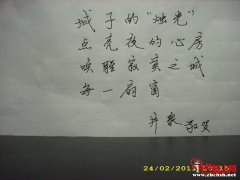 城子的“烛光”
点亮夜的心房
唤醒寂寞之城
每一扇窗
24/02/201